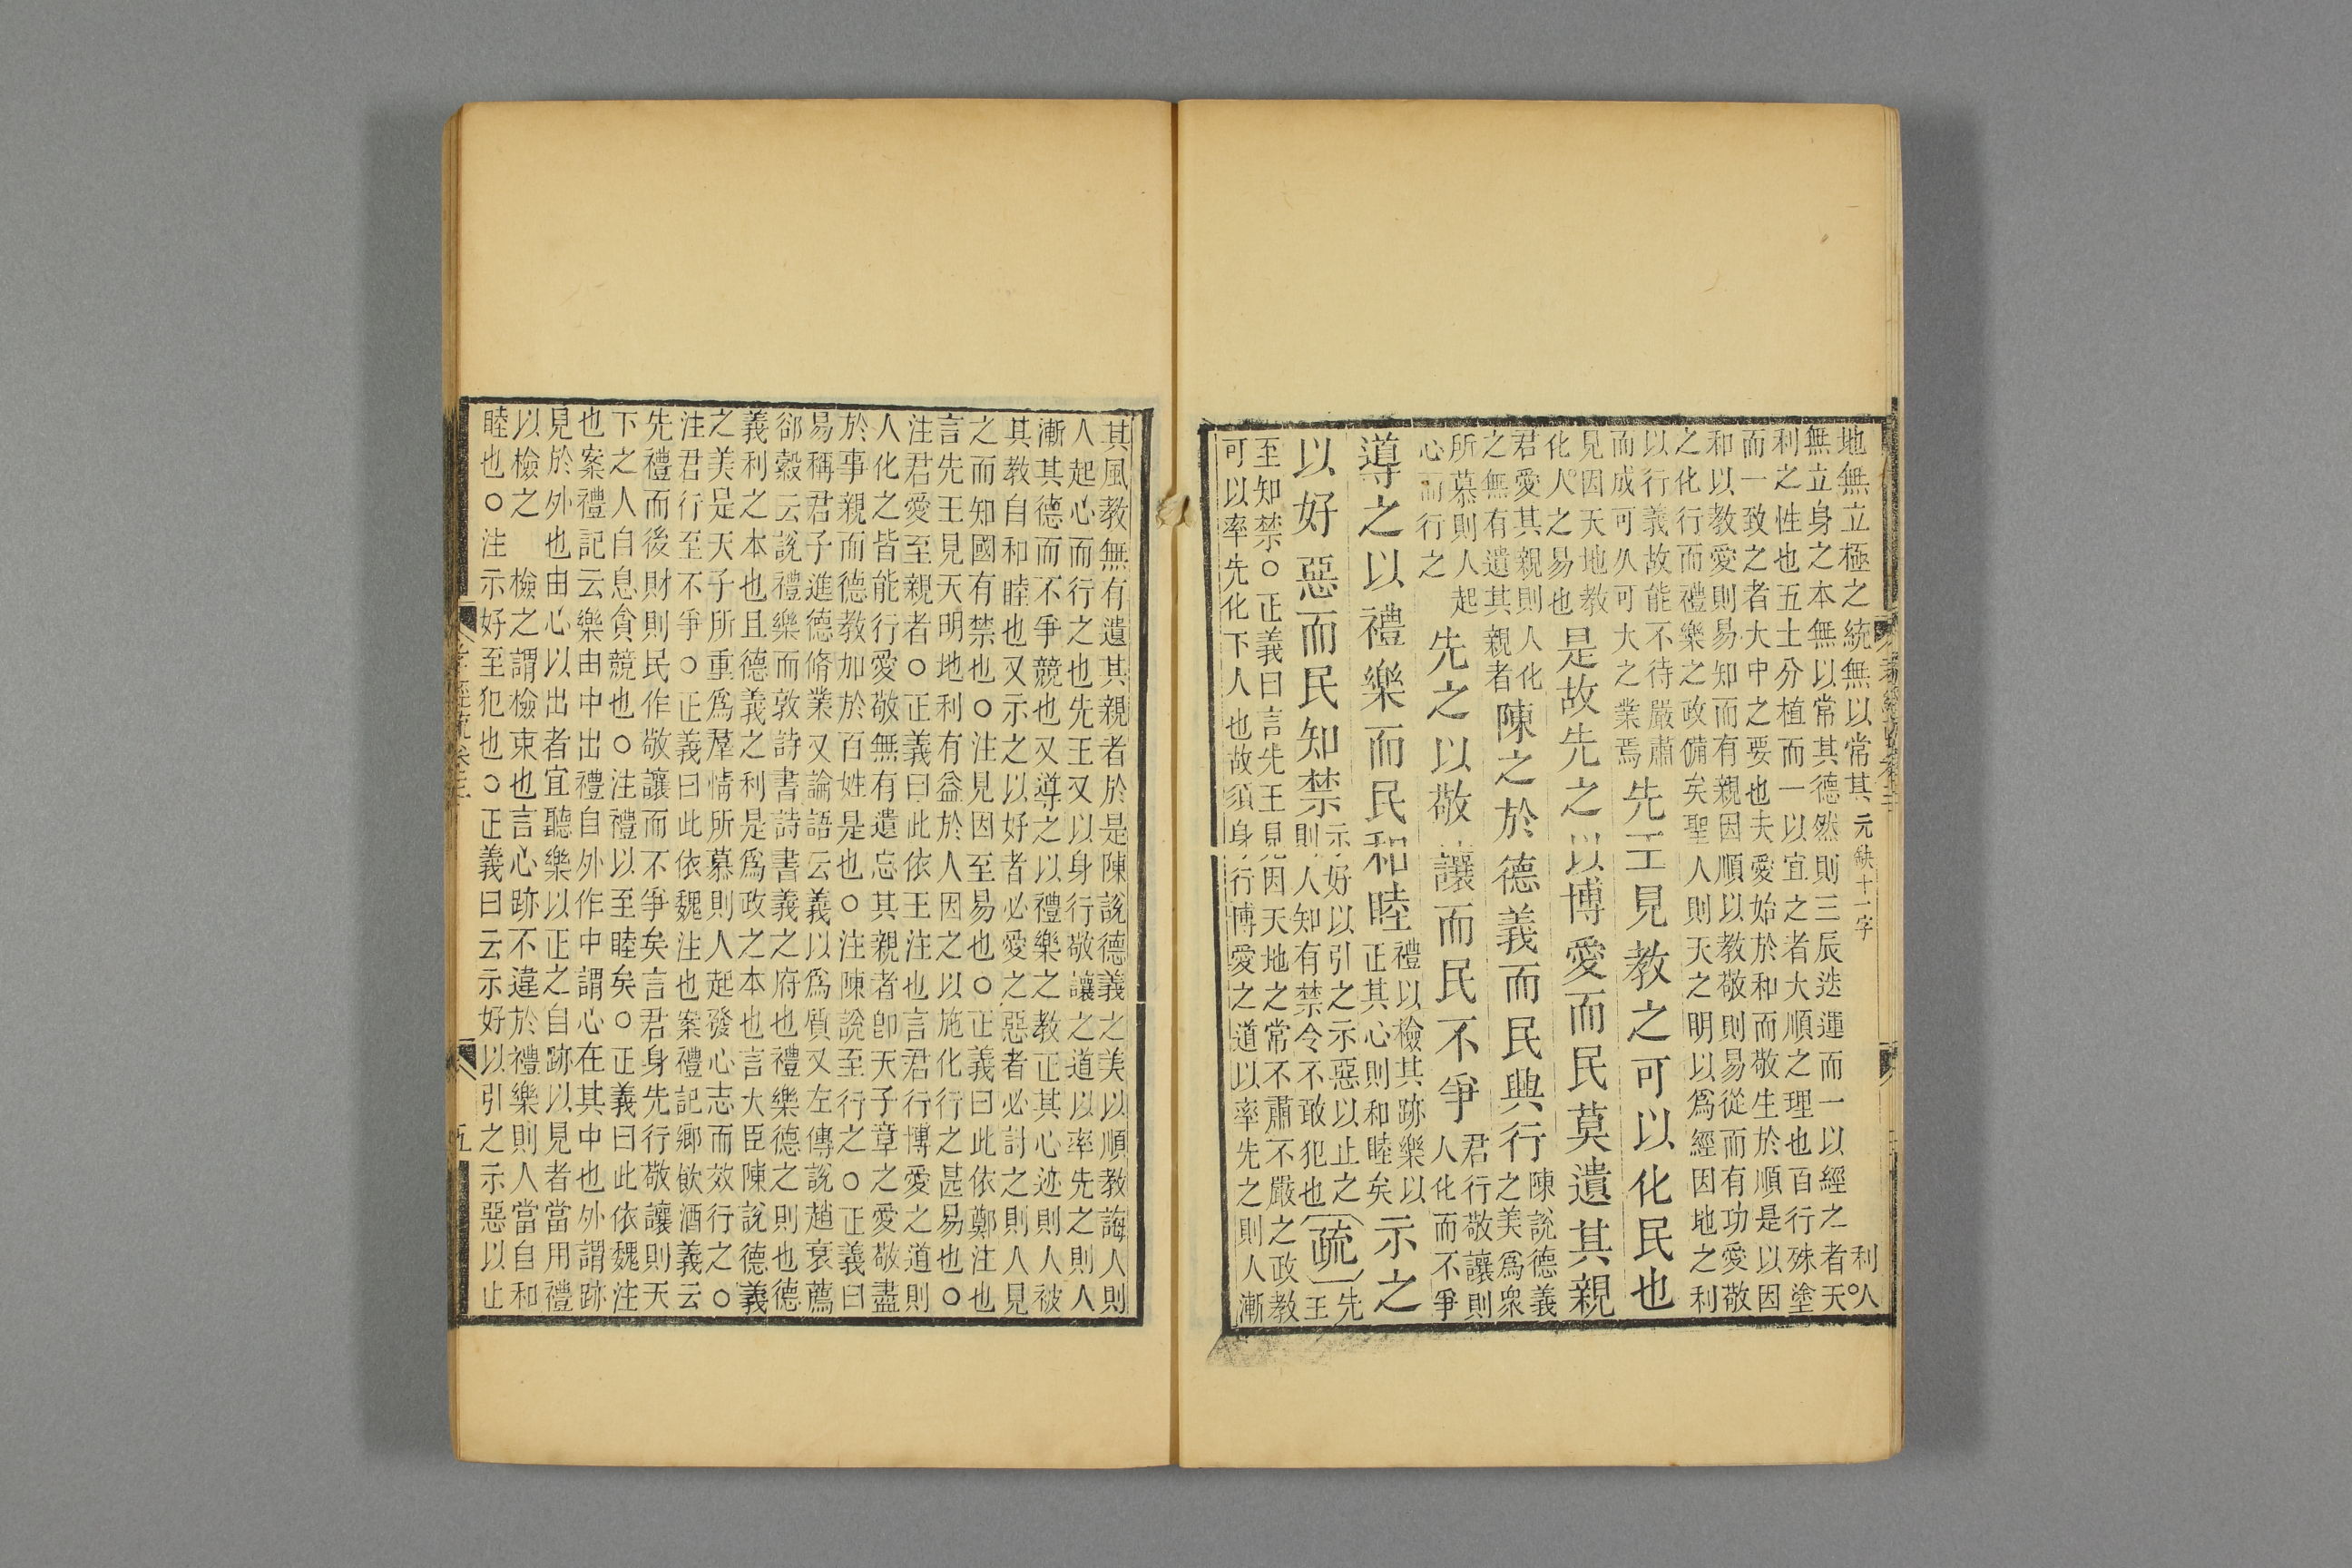 地無立極之統無以常其 元缺十一字 利○人
無立身之本無以常其德然則三辰迭運而一以經之者天
利之性也五土分植而一以宜之者大順之理也百行殊塗
而一致之者大中之要也夫愛始於和而敬生於順是以因
和以教愛則易知而有親因順以教敬則易從而有功愛敬
之化行而禮樂之政備矣聖人則天之明以爲經因地之利
以行義故能不待嚴肅
而成可久可大之業焉
先王見教之可以化民也
見因天地教
化人之易也
是故先之以博愛而民莫遺其親
君愛其親則人化
之無有遺其親者
陳之於德義而民興行
陳說德義
之美爲衆
所慕則人起
心而行之
先之以敬讓而民不爭
君行敬讓則
人化而不爭
導之以禮樂而民和睦
禮以檢其跡樂以
正其心則和睦矣
示之
以好惡而民知禁
示好以引之示惡以止之
則人知有禁令不敢犯也
疏
先
王
至知禁○正義曰言先王見因天地之常不肅不嚴之政教
可以率先化下人也故須身行博愛之道以率先之則人漸
其風教無有遺其親者於是陳說德義之美以順教誨人則
人起心而行之也先王又以身行敬讓之道以率先之則人
漸其德而不爭競也又導之以禮樂之教正其心迹則人被
其教自和睦也又示之以好者必愛之惡者必討之則人見
之而知國有禁也○注見因至易也○正義曰此依鄭注也
言先王見天明地利有益於人因之以施化行之甚易也○
注君愛至親者○正義曰此依王注也言君行博愛之道則
人化之皆能行愛敬無有遺忘其親者卽天子章之愛敬盡
於事親而德教加於百姓是也○注陳說至行之○正義曰
易稱君子進德脩業又論語云義以爲質又左傳說趙衰薦
郤縠云說禮樂而敦詩書詩書義之府也禮樂德之則也德
義利之本也且德義之利是爲政之本也言大臣陳說德義
之美是天子所重爲羣情所慕則人起發心志而效行之○
注君行至不爭○正義曰此依魏注也案禮記鄉飲酒義云
先禮而後財則民作敬讓而不爭矣言君身先行敬讓則天
下之人自息貪競也○注禮以至睦矣○正義曰此依魏注
也案禮記云樂由中出禮自外作中謂心在其中也外謂跡
見於外也由心以出者宜聽樂以正之自跡以見者當用禮
以檢之檢之謂檢束也言心跡不違於禮樂則人當自和
睦也○注示好至犯也○正義曰云示好以引之示惡以止
孝經疏卷三
五